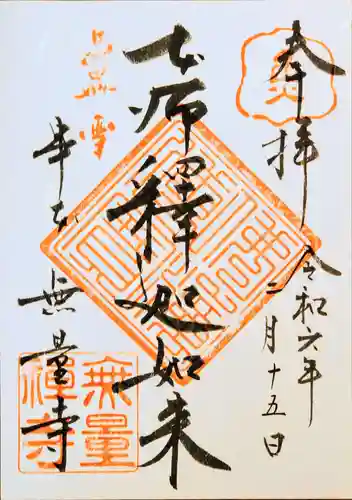 奉拝
令和六年
二月十五日
本師釋迦如来
串本
無量寺
無量
禪寺